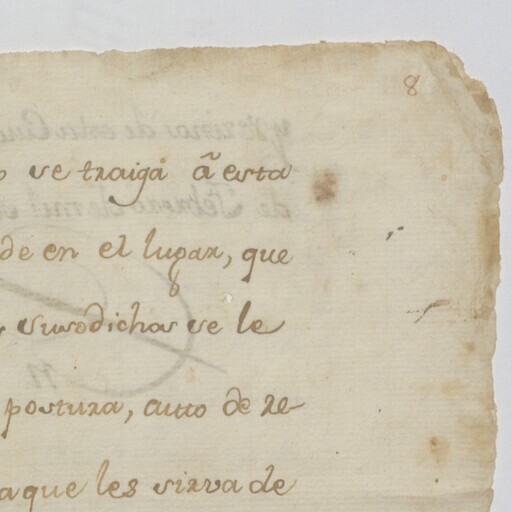 8
se traiga â esta
de en el lugar, que
susodichos se le
postura, auto de re-
a que les sirva de